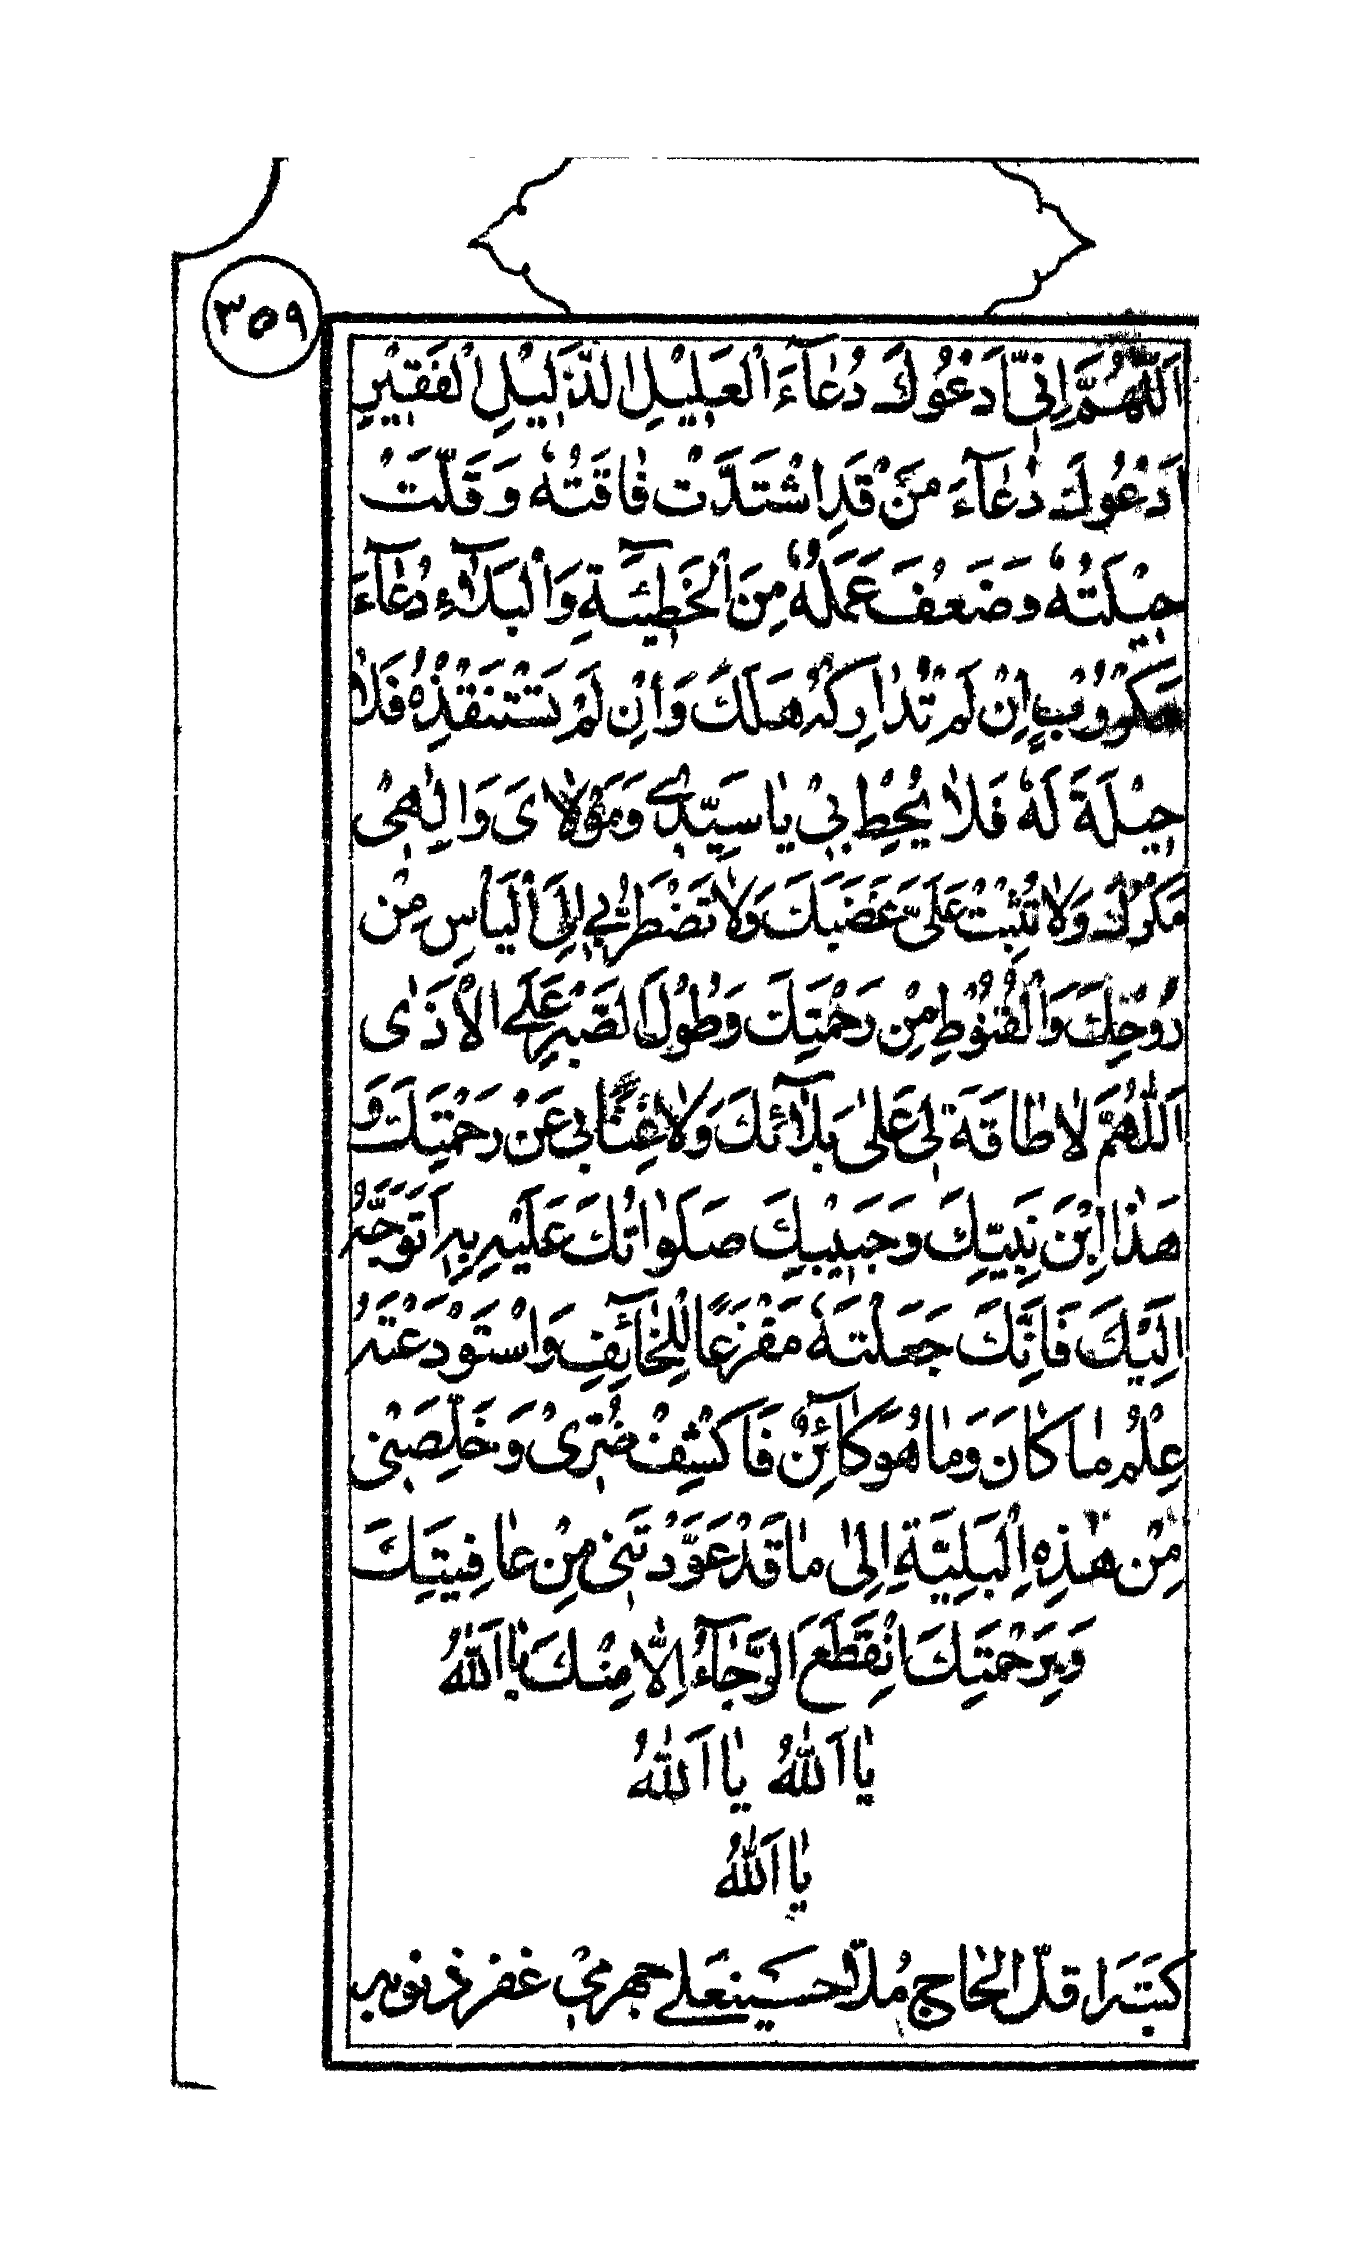 ٣٥٩
اَللّٰهُمَّ اِنّىٓ اَدْعُوكَ دُعٰآءَ الْعَلِيْلِ الذَّلِيْلِ الْفَقِيْرِ
اَدْعُوكَ دُعٰآءَ مَنْ قَدِ اشْتَدَّتْ فٰاقَتُهُ وَقَلَّتْ
حِيْلَتُهُ وَضَعُفَ عَمَلُهُ مِنَ الْخَطِيْئَةِ وَالْبَلٰآءِ دُعٰآءَ
مَكْرُوْبٍ اِنْ لَمْ تُدٰارِكْهُ هَلَكَ وَاِنْ لَمْ تَسْتَنْقِذْهُ فَلاٰ
حِيْلَةَ لَهُ فَلاٰ يُحِطْ بِىْ يٰا سَيِّدِىْ وَمَوْلاٰىَ وَاِلٰهِىْ
مَكْرُكَ وَلاٰ تُثْبِتْ عَلَىَّ غَضَبَكَ وَلاٰ تَضْطَرَّنِىْ اِلَى الْيَأْسِ مِنْ
رَوْحِكَ وَالْقُنُوْطِ مِنْ رَحْمَتِكَ وَطُوْلِ الصَّبْرِ عَلَى الْاَذٰى
اَللّٰهُمَّ لاٰ طٰاقَةَ لِى عَلىٰ بَلٰآئِكَ وَلاٰ غِنًا بِى عَنْ رَحْمَتِكَ وَ
هَذَا ابْنَ نَبِيِّكَ وَحَبِيْبِكَ صَلَوٰاتُكَ عَلَيْهِ بِهِ اَتَوَجَّهُ
اِلَيْكَ فَاِنَّكَ جَعَلْتَهُ مَفْزَعًا لِلْخٰآئِفِ وَاسْتَوْدَعْتَهُ
عِلْمَ مٰا كٰانَ وَمٰا هُوَ كٰآئِنٌ فَاكْشِفْ ضُرّىْ وَخَلِّصْنِىْ
مِنْ هٰذِهِ الْبَلِيَّةِ اِلىٰ مٰا قَدْ عَوَّدْتَنِى مِنْ عٰافِيَتِكَ
وَبِرَحْمَتِكَ انْقَطَعَ الرَّجٰآءُ اِلاّٰ مِنْكَ يٰا اَللّٰهُ
يٰا اَللّٰهُ يٰا اَللّٰهُ
يٰا اَللّٰهُ
كَتَبَهُ اَقلّ الحٰاج مُلّا حسَينعَلى جمرمىْ غفر ذنوبه